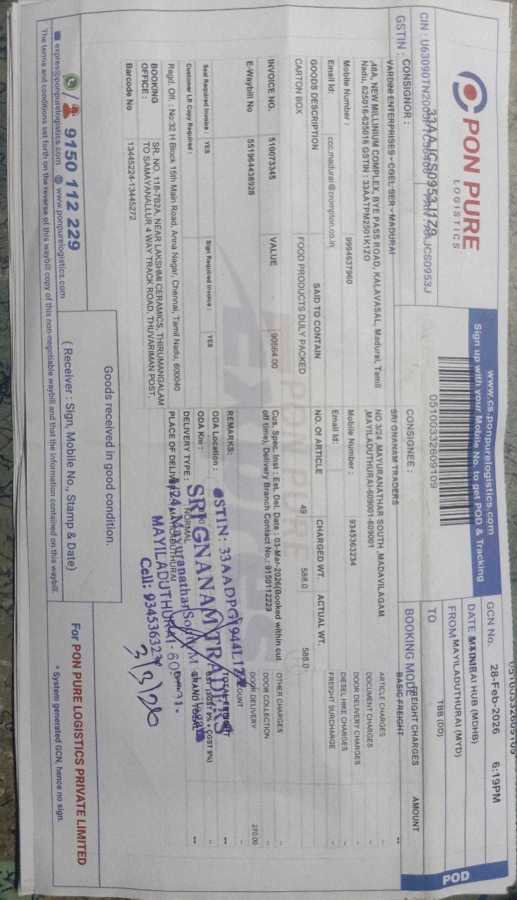 PON PURE
LOGISTICS
www.cs.ponpurelogistics.com
Sign up with your Mobile No. to get POD & Tracking
POD
GCN No.
05100332609109
DATE
28-Feb-2026 6:19PM
FROM
MAYILADUTHURAI (MYD)
TO
BOOKING MODE
TBB (00)
GSTIN :
33AAJCS0953J1Z9
CONSIGNOR :
VARDHB ENTERPRISES - CGEL SER - MADURAI
48A, NEW MILLINIUM COMPLEX, BYE PASS ROAD, KALAVASAL, Madurai, Tamil
Nadu, 625016-625016 GSTIN : 33AATPM2501K1ZO
Mobile Number : 9994637960
Email Id: ccc.madurai@crompton.co.in
CONSIGNEE :
SRI GNANAM TRADERS
NO 3/24 MAYURANATHAR SOUTH MADAVILAGAM
,MAYILADUTHURAI-609001-609001
Mobile Number : 9345363234
Email Id:
GOODS DESCRIPTION
SAID TO CONTAIN
NO. OF ARTICLE
CHARGED WT.
ACTUAL WT.
CARTON BOX
FOOD PRODUCTS DULY PACKED
49
588.0
588.0
INVOICE NO. 510073345
VALUE 90564.00
E-Waybill No 551964438928
Cus. Spec. Inst : Est. Del. Date : 03-Mar-2026(Booked within cut
off time), Delivery Branch Contact No.: 9150112229
Seal Required Invoice : YES
Sign Required Invoice : YES
Customer LR Copy Required :
REMARKS:
ODA Location :
ODA Km :
DELIVERY TYPE : NORMAL
PLACE OF DELIVERY
Regd. Off. : No:32 H Block 15th Main Road, Anna Nagar, Chennai, Tamil Nadu, 600040
BOOKING
OFFICE :
SR. NO. 118-7B2A, NEAR LAKSHMI CERAMICS, THIRUMANGALAM
TO SAMAYANALLUR 4 WAY TRACK ROAD, THUVARIMAN POST,
Barcode No 13445224-13445272
FREIGHT CHARGES
AMOUNT
BASIC FREIGHT --
ARTICLE CHARGES -
DOCUMENT CHARGES -
DOOR DELIVERY CHARGES -
DIESEL HIKE CHARGES -
FREIGHT SURCHARGE -
OTHER CHARGES -
DOOR COLLECTION -
DOOR DELIVERY 270.00
GRAND TOTAL --
GSTIN: 33AADPG1944L1Z
SRI GNANAM TRADERS
MAYILADUTHURAI
Cell: 9345363234
3/3/26
Goods received in good condition.
( Receiver : Sign, Mobile No., Stamp & Date)
For PON PURE LOGISTICS PRIVATE LIMITED
* System generated GCN, hence no sign.
9150 112 229
expres@ponpurelogistics.com www.ponpurelogistics.com
The terms and conditions set forth on the reverse of this waybill copy of this non-negotiable waybill and that the information contained on this waybill.